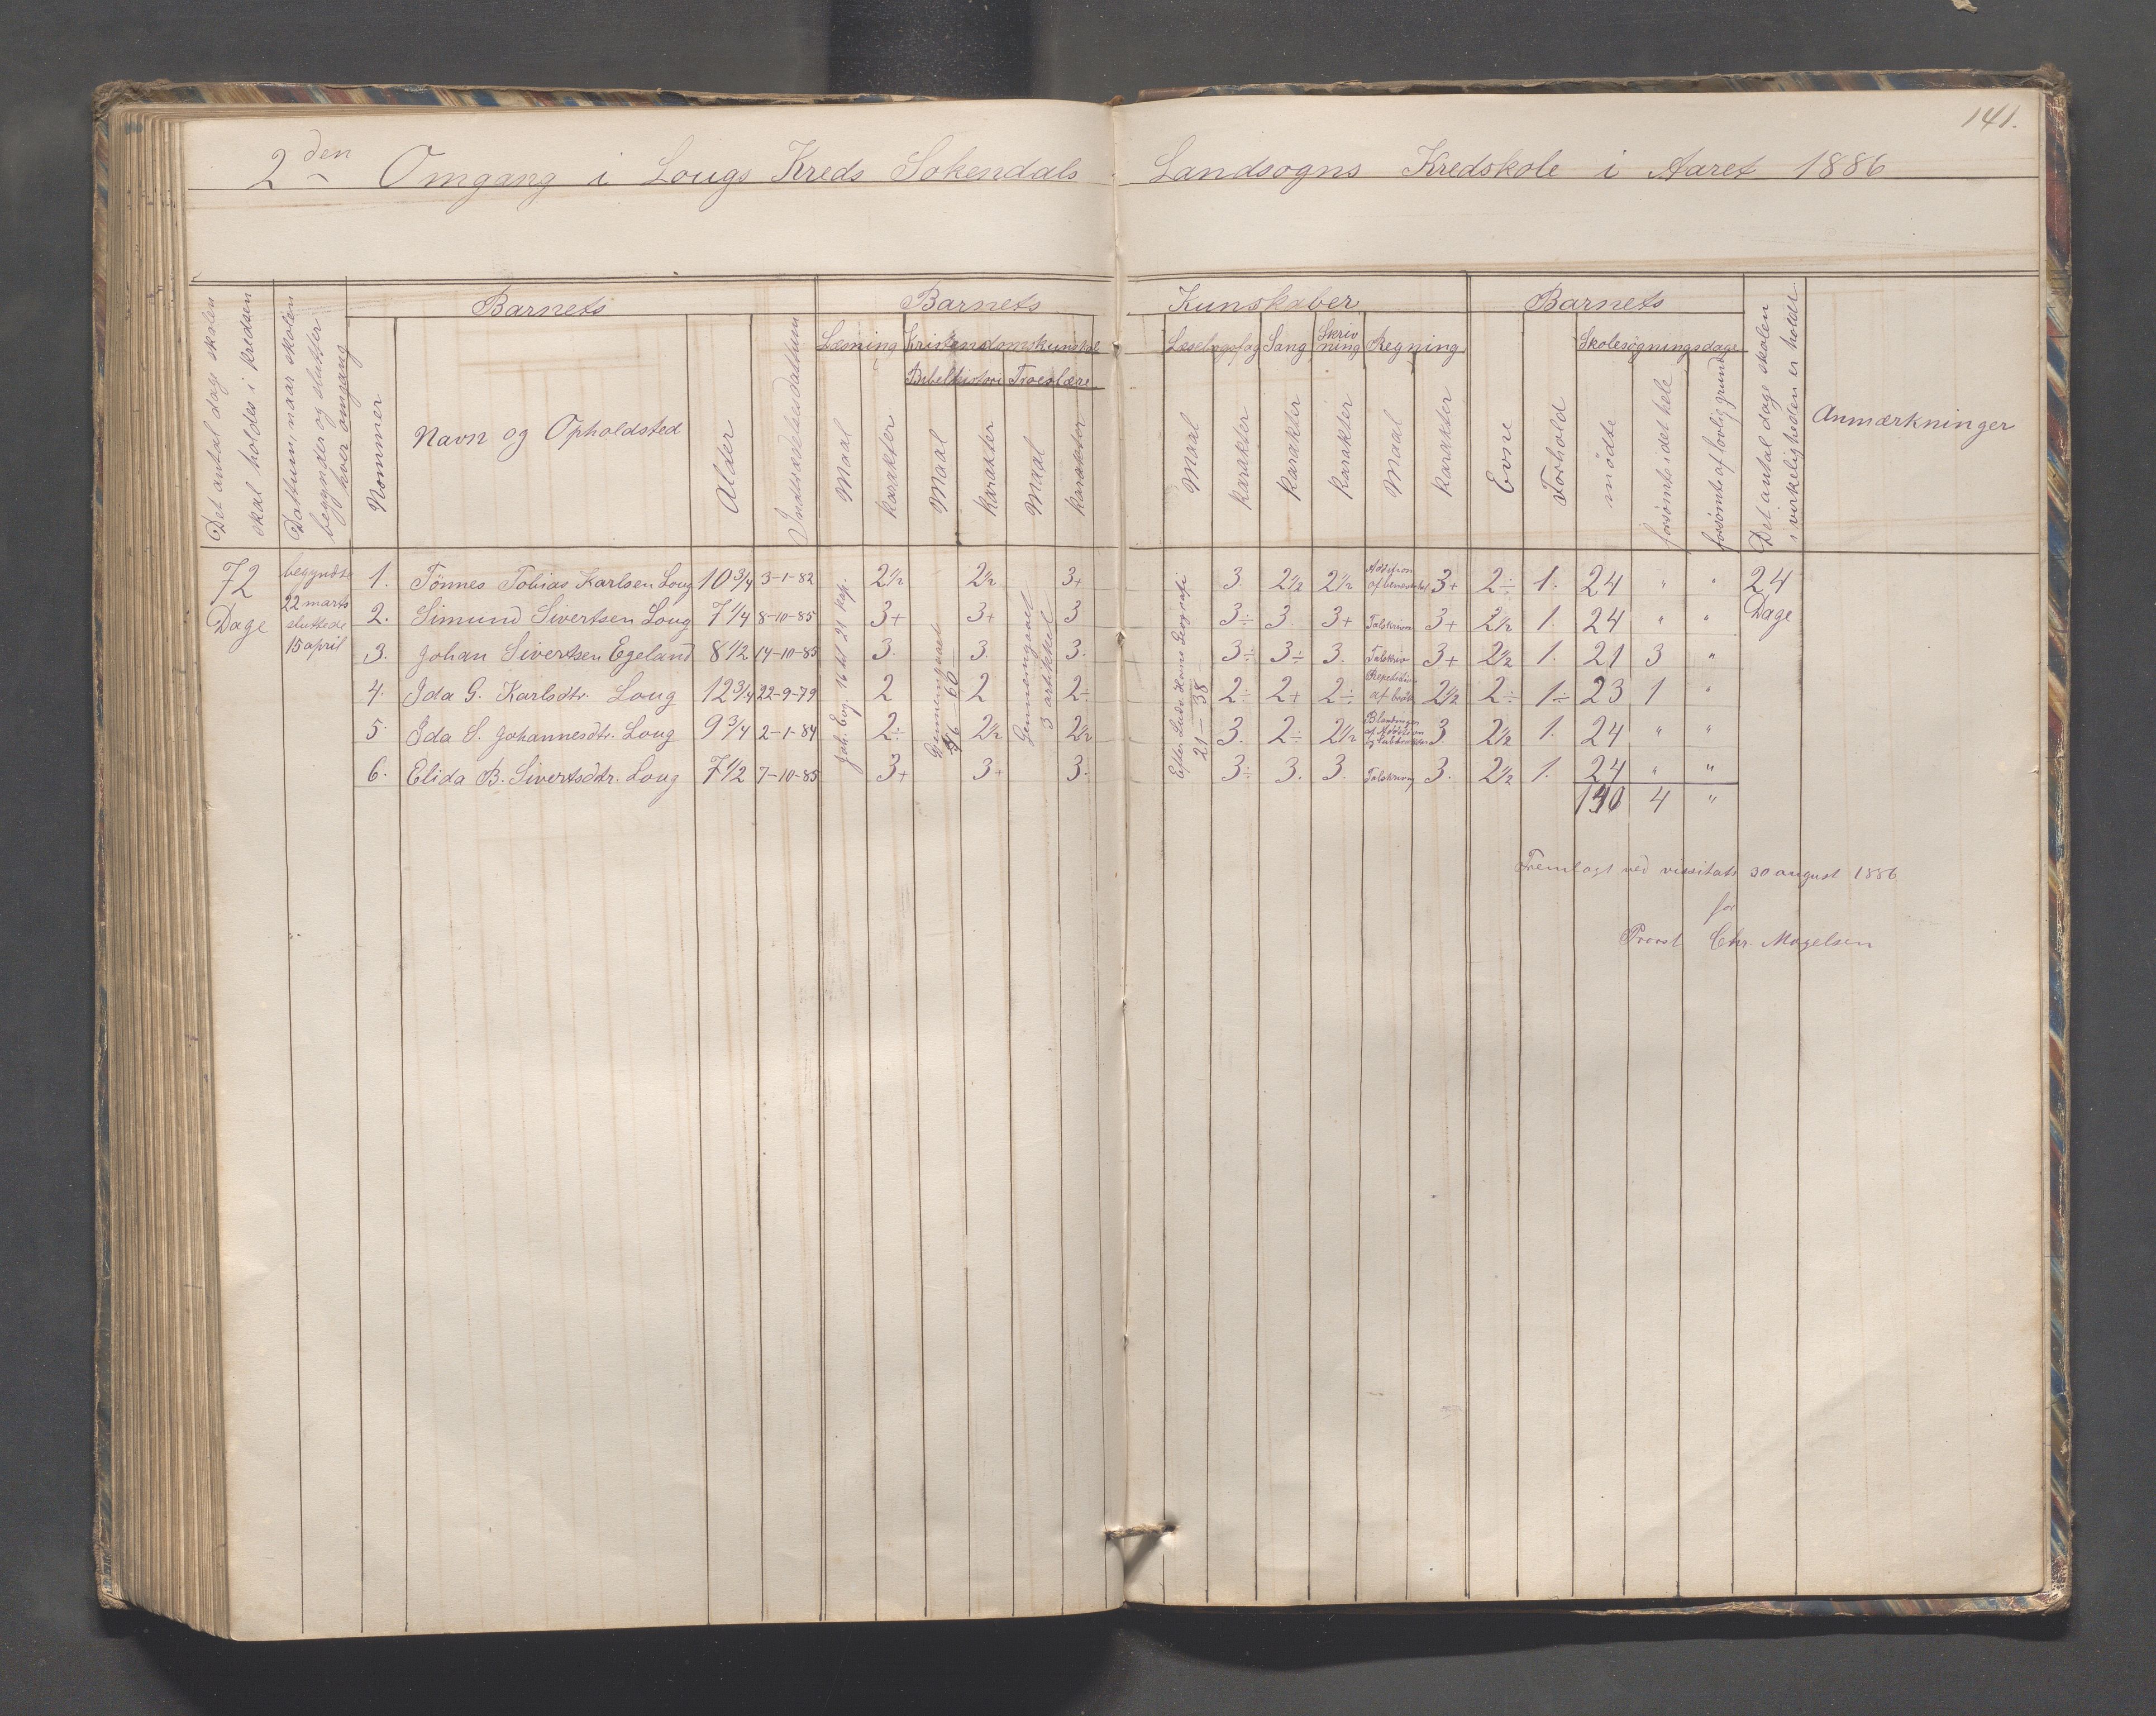 141.
2den Omgang i Lougs Kreds Sokendals Landsogns Kredskole i Aaret 1886
Det antal dage skolen skal holdes i kredsen
Dattum, naar skolen begynder og slutter hver omgang
Barnets
Nommer
Navn og Opholdsted
Alder
Indtrædelsesdattum
Barnets Kunskaber
Læsning
Maal
Karakter
Kristendomskunskab
Bibelhistori
Maal
Karakter
Troeslære
Maal
Karakter
Læsebogsfag
Maal
Karakter
Sang
Karakter
Skrivning
Karakter
Regning
Maal
Karakter
Barnets
Evne
Forhold
Skolesøgningsdage
mødte
forsømte i det hele
forsømte af lovlig grund
Det antal dage skolen i virkeligheden er holdt
Anmærkninger
72 Dage
begyndte 22 marts sluttede 15 april
Joh. Evg. 16 til 21 kap.
Gjennemgaaet 46 – 60
Gjennemgaaet 3 artikkel
Efter Ludv. Horns Geografi 21 – 38
1. Tönnes Tobias Karlsen Loug 10 3/4 3-1-82 2 1/2 2 1/2 3+ 3. 2 1/2 2 1/2 Addition af benævnt 3+ 2÷ 1. 24 " " 24 Dage
2. Simund Sivertsen Loug 7 1/4 8-10-85 3+ 3+ 3 3÷ 3. 3+ Talskrivn 3+ 2 1/2 1. 24 " "
3. Johan Sivertsen Egeland 8 1/2 14-10-85 3. 3. 3. 3÷ 3÷ 3. Talskriv 3+ 2 1/2 1. 21 3 "
4. Ida G. Karlsdtr. Loug 12 3/4 22-9-79 2 2 2÷ 2÷ 2+ 2÷ Repetition af brök 2 1/2 2÷ 1÷ 23 1 "
5. Ida S. Johannesdtr. Loug 9 3/4 2-1-84 2÷ 2 1/2 2 1/2 3. 2÷ 2 1/2 Blandinger af Addition og Subtraktion 3. 2 1/2 1. 24 " "
6. Elida B. Sivertsdtr. Loug 7 1/2 7-10-85 3+ 3+ 3. 3÷ 3. 3. Talskrivn 3. 2 1/2 1. 24 " "
140 4 "
Fremlagt ved vissitats 30 august 1886
for
Provst Chr. Magelsen